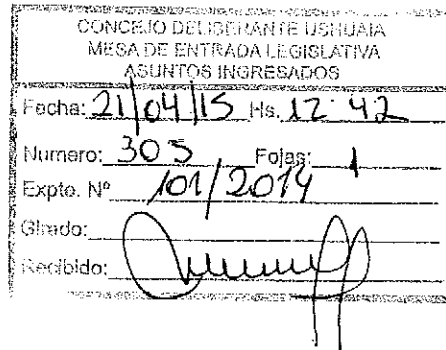 CONCEJO DELIBERANTE USHUAIA
MESA DE ENTRADA LEGISLATIVA
ASUNTOS INGRESADOS
Fecha: 21/04/15 Hs. 12:42
Numero: 303 Fojas: 1
Expte. Nº 101/2014
Girado:
Recibido: